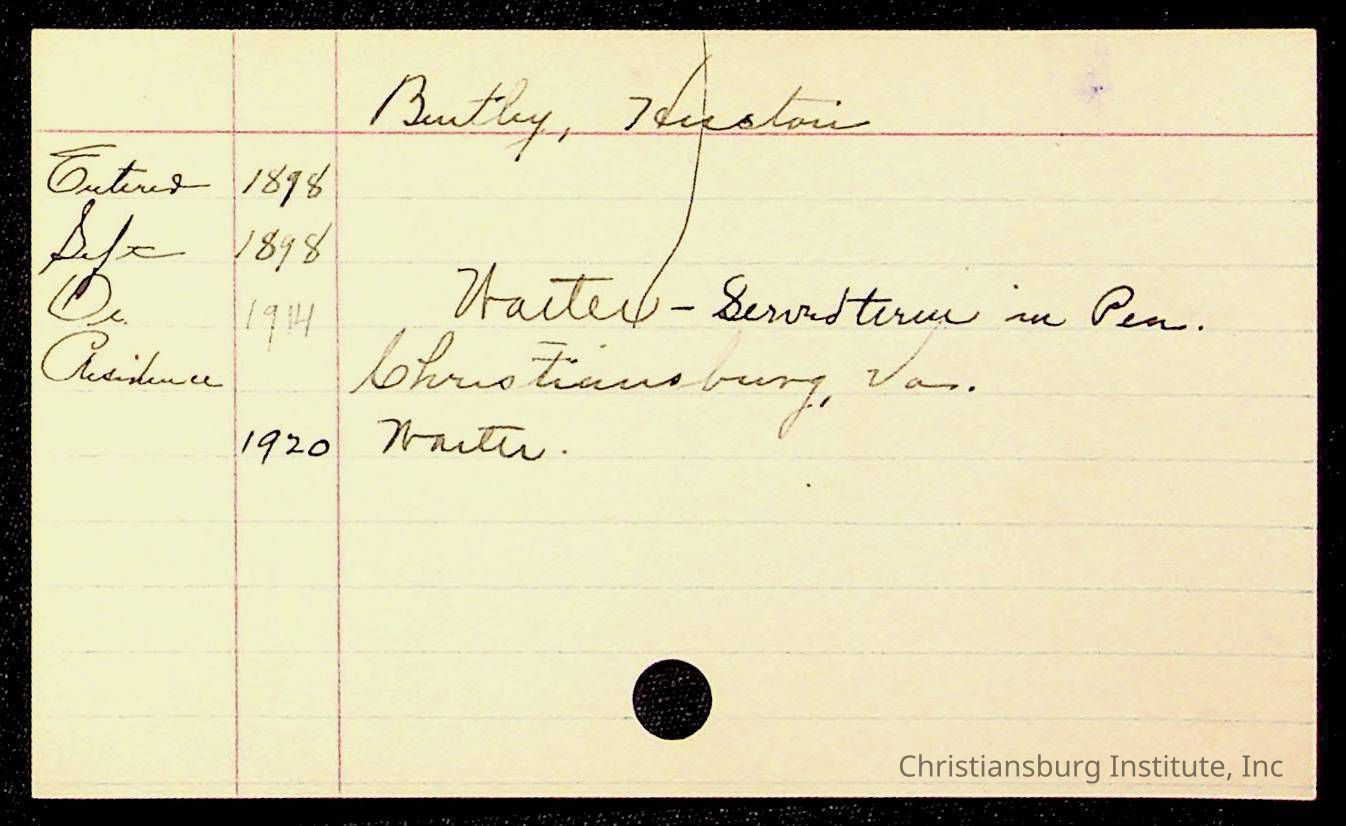 Bentley, Huston
Entered 1898
Left 1898
Oc. 1914 Waiter - Served term in Pen.
Residence Christiansburg, Va.
1920 Waiter.
Christiansburg Institute, Inc